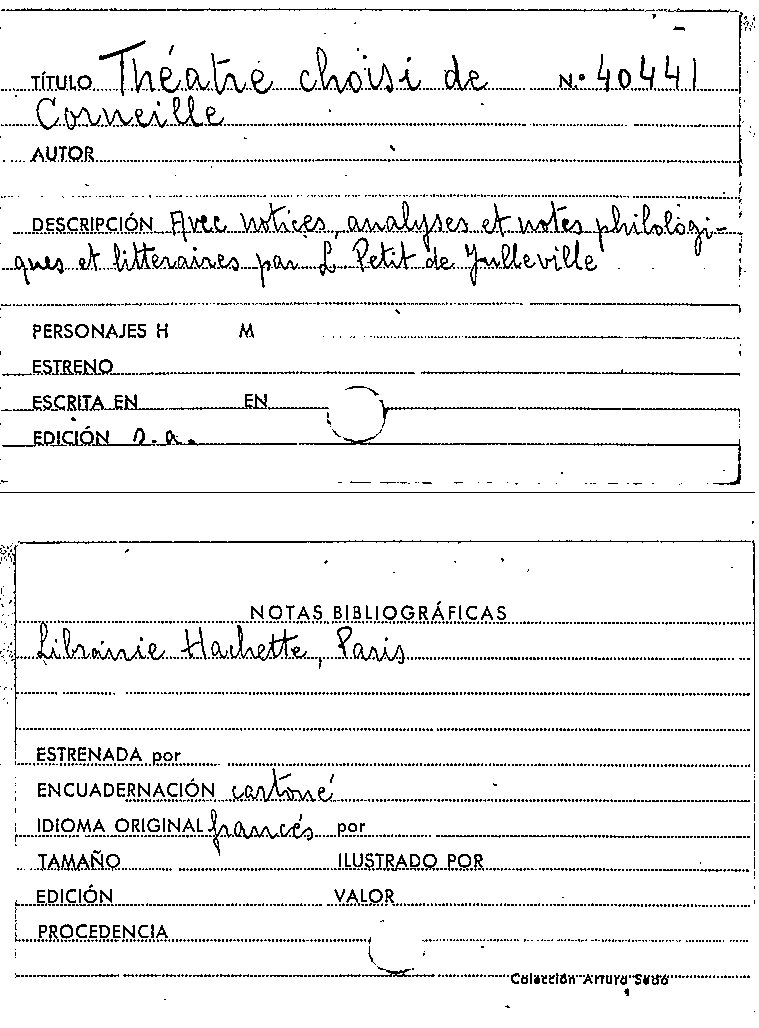 TÍTULO Théatre choisi de N.º 40441
Corneille
AUTOR
DESCRIPCIÓN Avec notices, analyses et notes philologi-
ques et litteraires par L Petit de Julleville
PERSONAJES H M
ESTRENO
ESCRITA EN EN
EDICIÓN s.a.
NOTAS BIBLIOGRÁFICAS
Librairie Hachette, Paris
ESTRENADA por
ENCUADERNACIÓN cartoné
IDIOMA ORIGINAL francés por
TAMAÑO ILUSTRADO POR
EDICIÓN VALOR
PROCEDENCIA
Colección Arturo Sedó